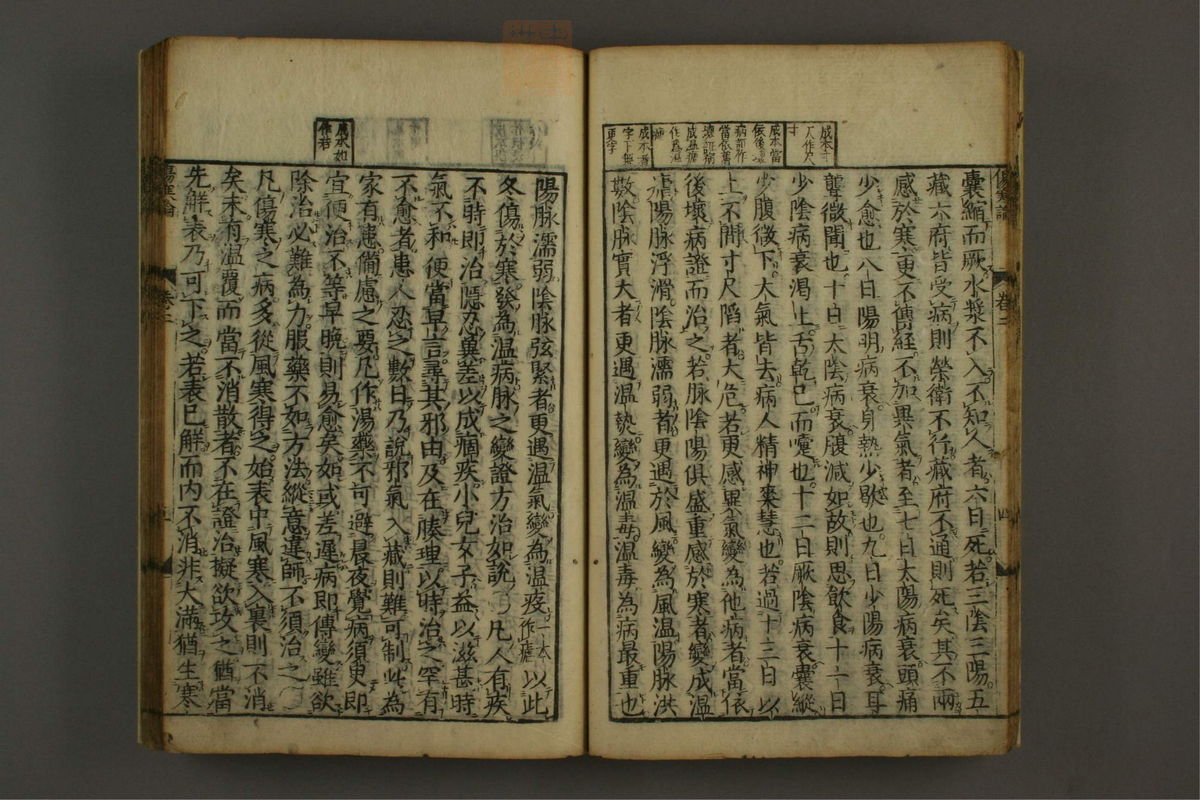 傷寒論
卷二
四
成本寸
尺作尺
寸
成本當
依後壞
病部作
當依舊
壞証病
成無濡
作為温
瘧
成本者
字下無
更字
囊縮而厥水漿不入不知人者六日死若三陰三陽五
藏六府皆受病則榮衛不行藏府不通則死矣其不兩
感於寒更不傳經不加異氣者至七日太陽病衰頭痛
少愈也八日陽明病衰身熱少歇也九日少陽病衰耳
聾微聞也十日太陰病衰腹減如故則思飲食十一日
少陰病衰渴止舌乾已而嚏也十二日厥陰病衰囊縱
少腹微下大氣皆去病人精神爽慧也若過十三日以
上不間寸尺陷者大危若更感異氣變為他病者當依
後壞病證而治之若脉陰陽俱盛重感於寒者變成温
瘧陽脉浮滑陰脉濡弱者更遇於風變為風温陽脉洪
數陰脉實大者更遇温熱變為温毒温毒為病最重也
陽脉濡弱陰脉弦緊者更遇温氣變為温疫一本作瘧以此
冬傷於寒發為温病脉之變證方治如說凡人有疾
不時即治隱忍冀差以成痼疾小兒女子益以滋甚時
氣不和便當早言尋其邪由及在腠理以時治之罕有
不愈者患人忍之數日乃說邪氣入藏則難可制此為
家有患備慮之要凡作湯藥不可避晨夜覺病須更即
宜便治不等早晚則易愈矣如或差遲病即傳變雖欲
除治必難為力服藥不如方法縱意違師不須治之
凡傷寒之病多從風寒得之始表中風寒入裏則不消
矣未有温覆而當不消散者不在證治擬欲攻之猶當
先解表乃可下之若表已解而内不消非大滿猶生寒
成本如
作若
傷寒論
卷二